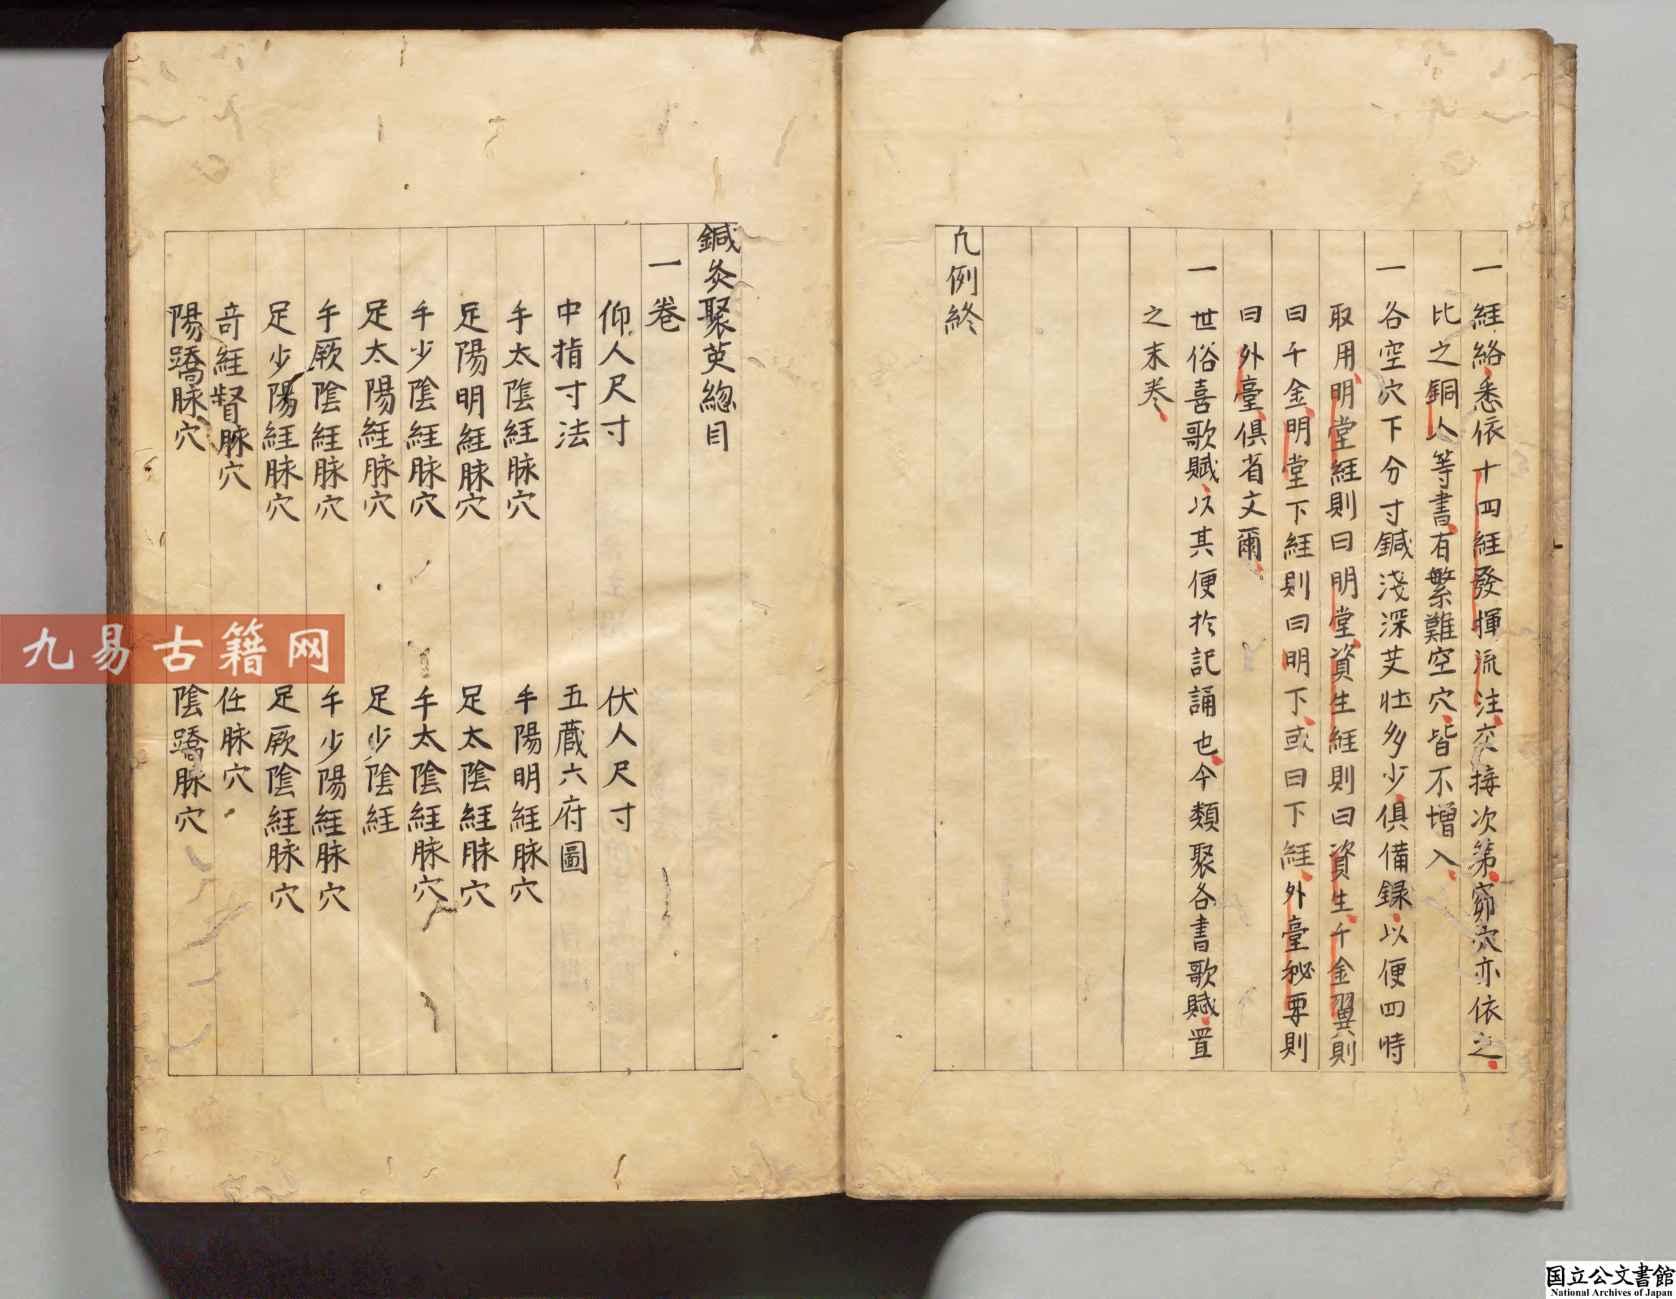 一經絡悉依十四經發揮流注交接次第窌穴亦依之
比之銅人等書有繁難空穴皆不增入
一各空穴下分寸鍼淺深艾壯多少俱備録以便四時
取用明堂經則曰明堂資生經則曰資生千金翼則
曰千金明堂下經則曰明下或曰下經外臺秘要則
曰外臺俱省文爾
一世俗喜歌賦以其便於記誦也今類聚各書歌賦置
之末卷
凡例終
鍼灸聚英總目
一卷
仰人尺寸 伏人尺寸
中指寸法 五蔵六府圖
手太陰經脉穴 手陽明經脉穴
足陽明經脉穴 足太陰經脉穴
手少陰經脉穴 手太陰經脉穴
足太陽經脉穴 足少陰經
手厥陰經脉穴 手少陽經脉穴
足少陽經脉穴 足厥陰經脉穴
奇經督脉穴 任脉穴
陽蹻脉穴 陰蹻脉穴
九易古籍网
国立公文書館
National Archives of Japan